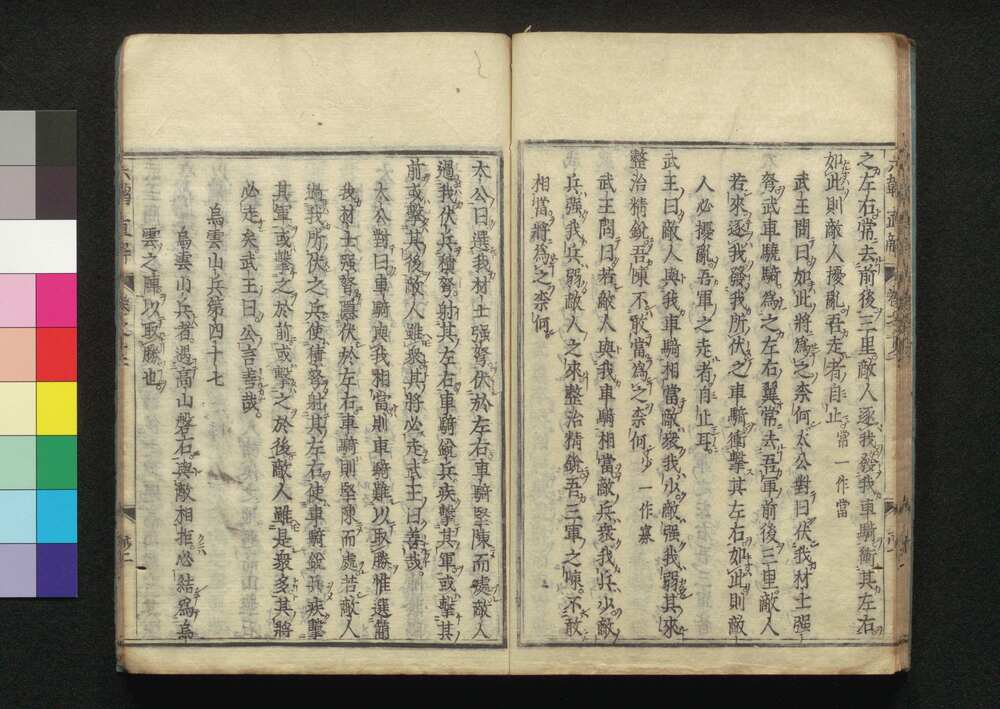 之左右常去前後三里敵人逐我發我車騎衝其左右
如此則敵人擾亂吾走者自止 常一作當
武王問曰如此將爲之柰何太公對曰伏我材士强
弩武車驍騎爲之左右翼常去吾軍前後三里敵人
若來逐我發我所伏之車騎衝擊其左右如此則敵
人必擾亂吾軍之走者自止耳
武王曰敵人與我車騎相當敵衆我少敵强我弱其來
整治精銳吾陳不敢當爲之柰何 少一作寡
武王問曰若敵人與我車騎相當敵兵衆我兵少敵
兵强我兵弱敵人之來整治精銳吾三軍之陳不敢
相當將爲之柰何
太公曰選我材士强弩伏於左右車騎堅陳而處敵人
過我伏兵積弩射其左右車騎銳兵疾擊其軍或擊其
前或擊其後敵人雖衆其將必走武王曰善哉
太公對曰車騎與我相當則車騎難以取勝惟選簡
我材士强弩隱伏於左右車騎則堅陳而處若敵人
過我所伏之兵使積弩射其左右使車騎銳兵疾擊
其軍或擊之於前或擊之於後敵人雖是衆多其將
必走矣武王曰公言善哉
烏雲山兵第四十七
烏雲山兵者遇高山磐石與敵相拒必結爲烏
雲之陣以取勝也